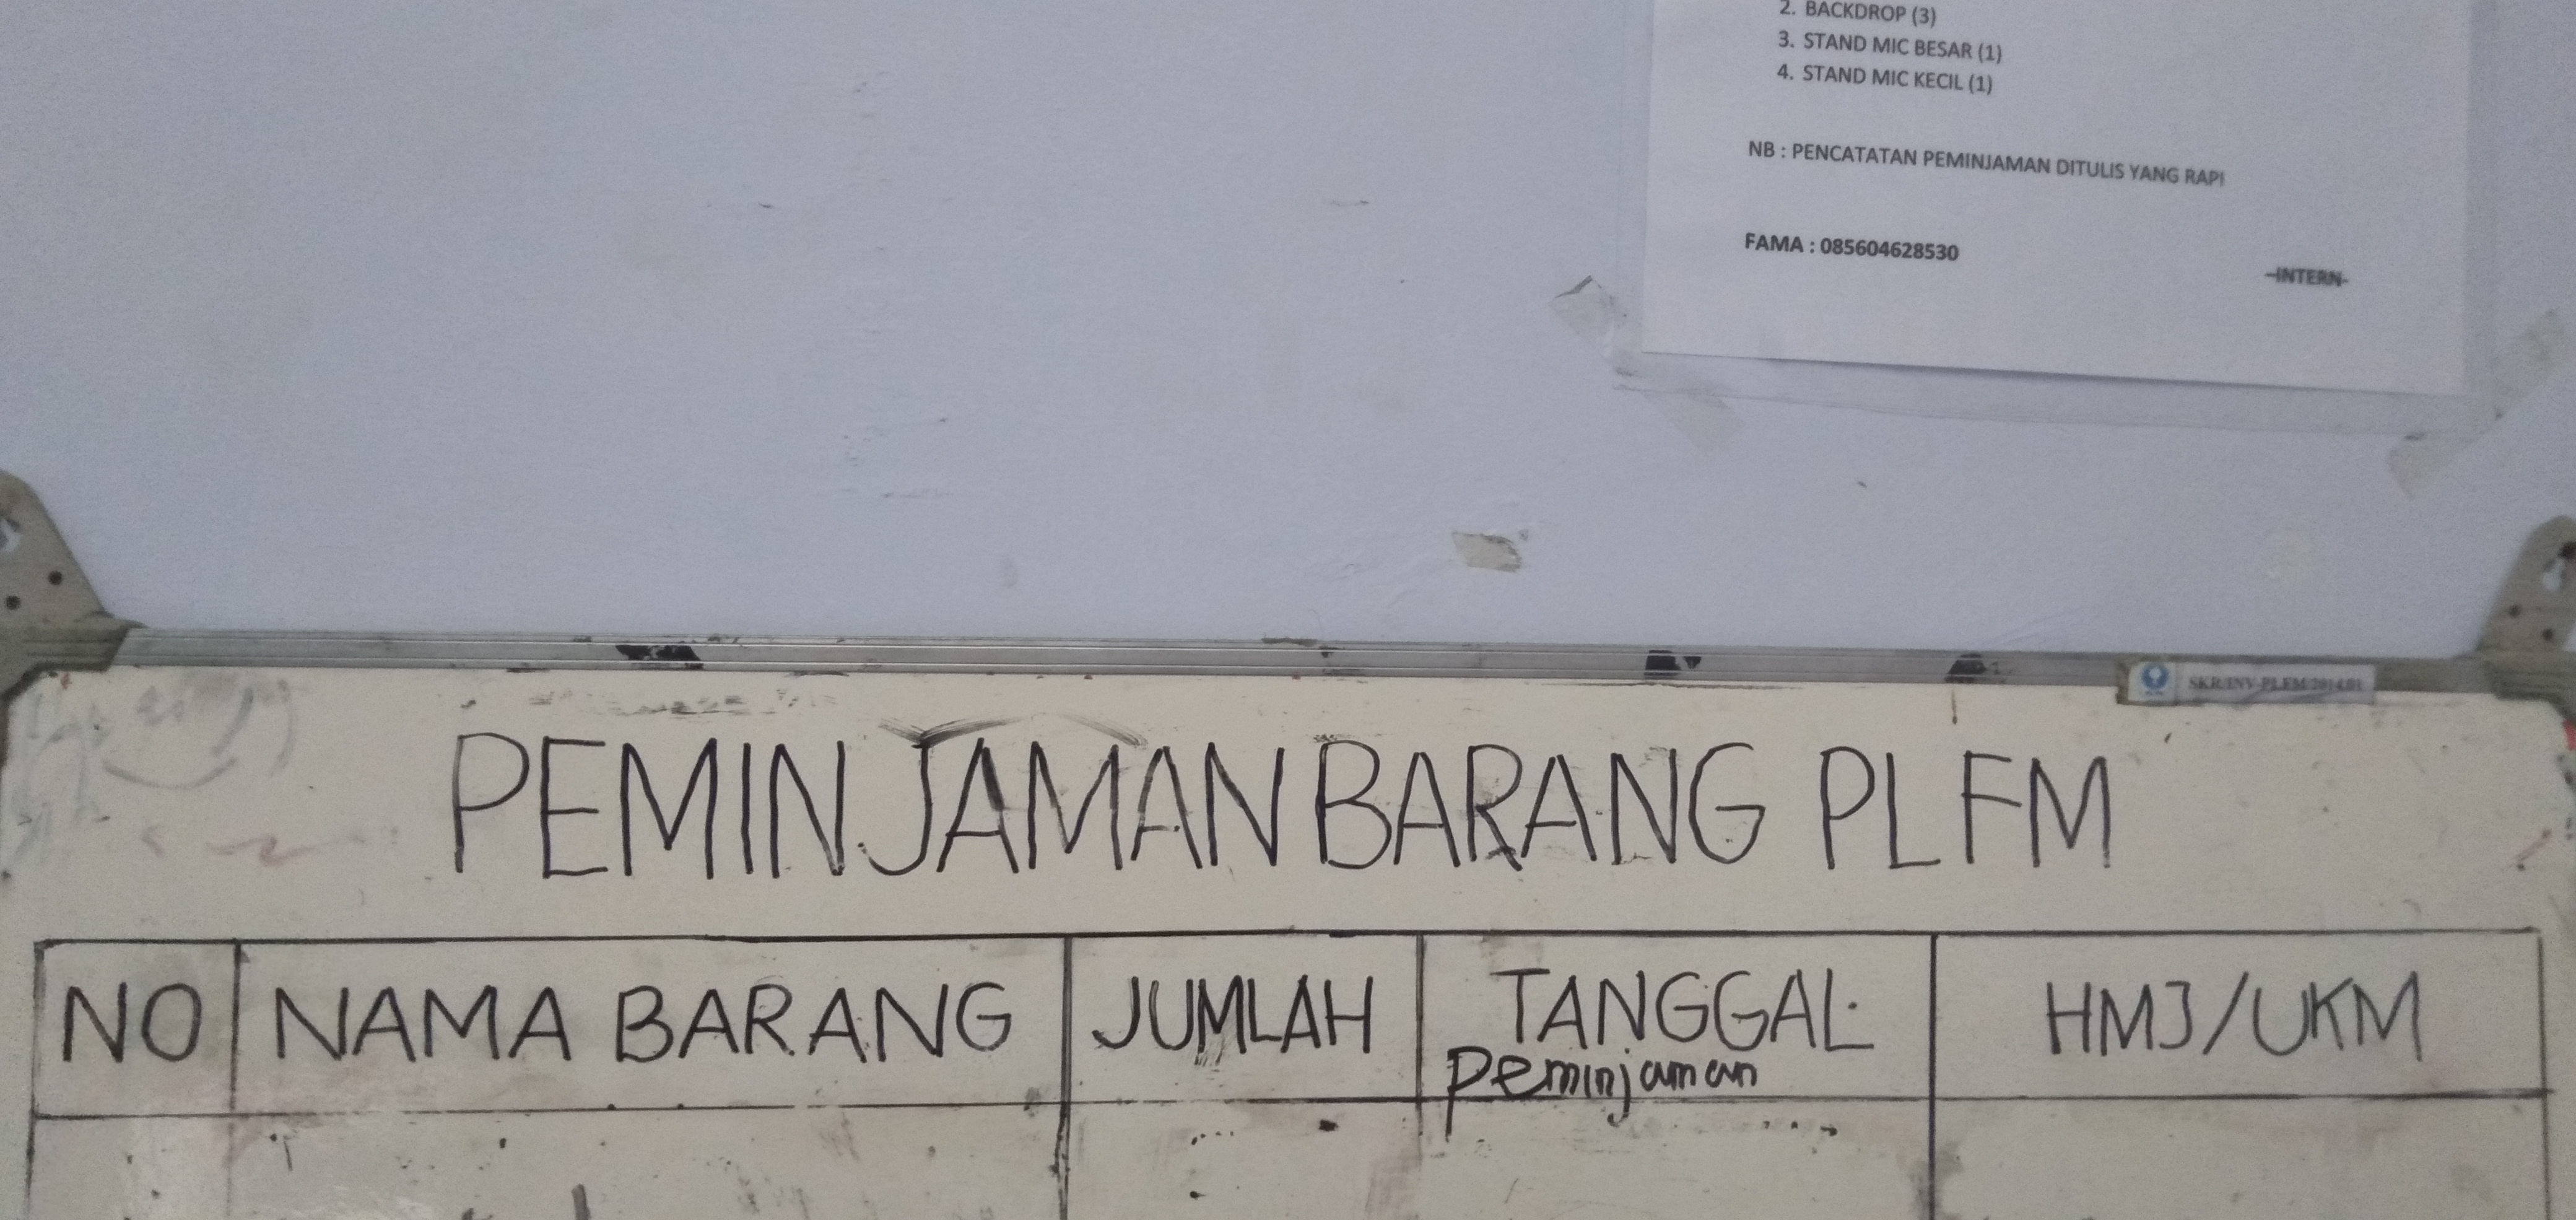 2. BACKDROP (3)
3. STAND MIC BESAR (1)
4. STAND MIC KECIL (1)
NB : PENCATATAN PEMINJAMAN DITULIS YANG RAPI
FAMA : 085604628530
-INTERN-
SKR/INV-PLFM/2014/01
PEMINJAMAN BARANG PLFM
NO NAMA BARANG JUMLAH TANGGAL HMJ/UKM
peminjaman